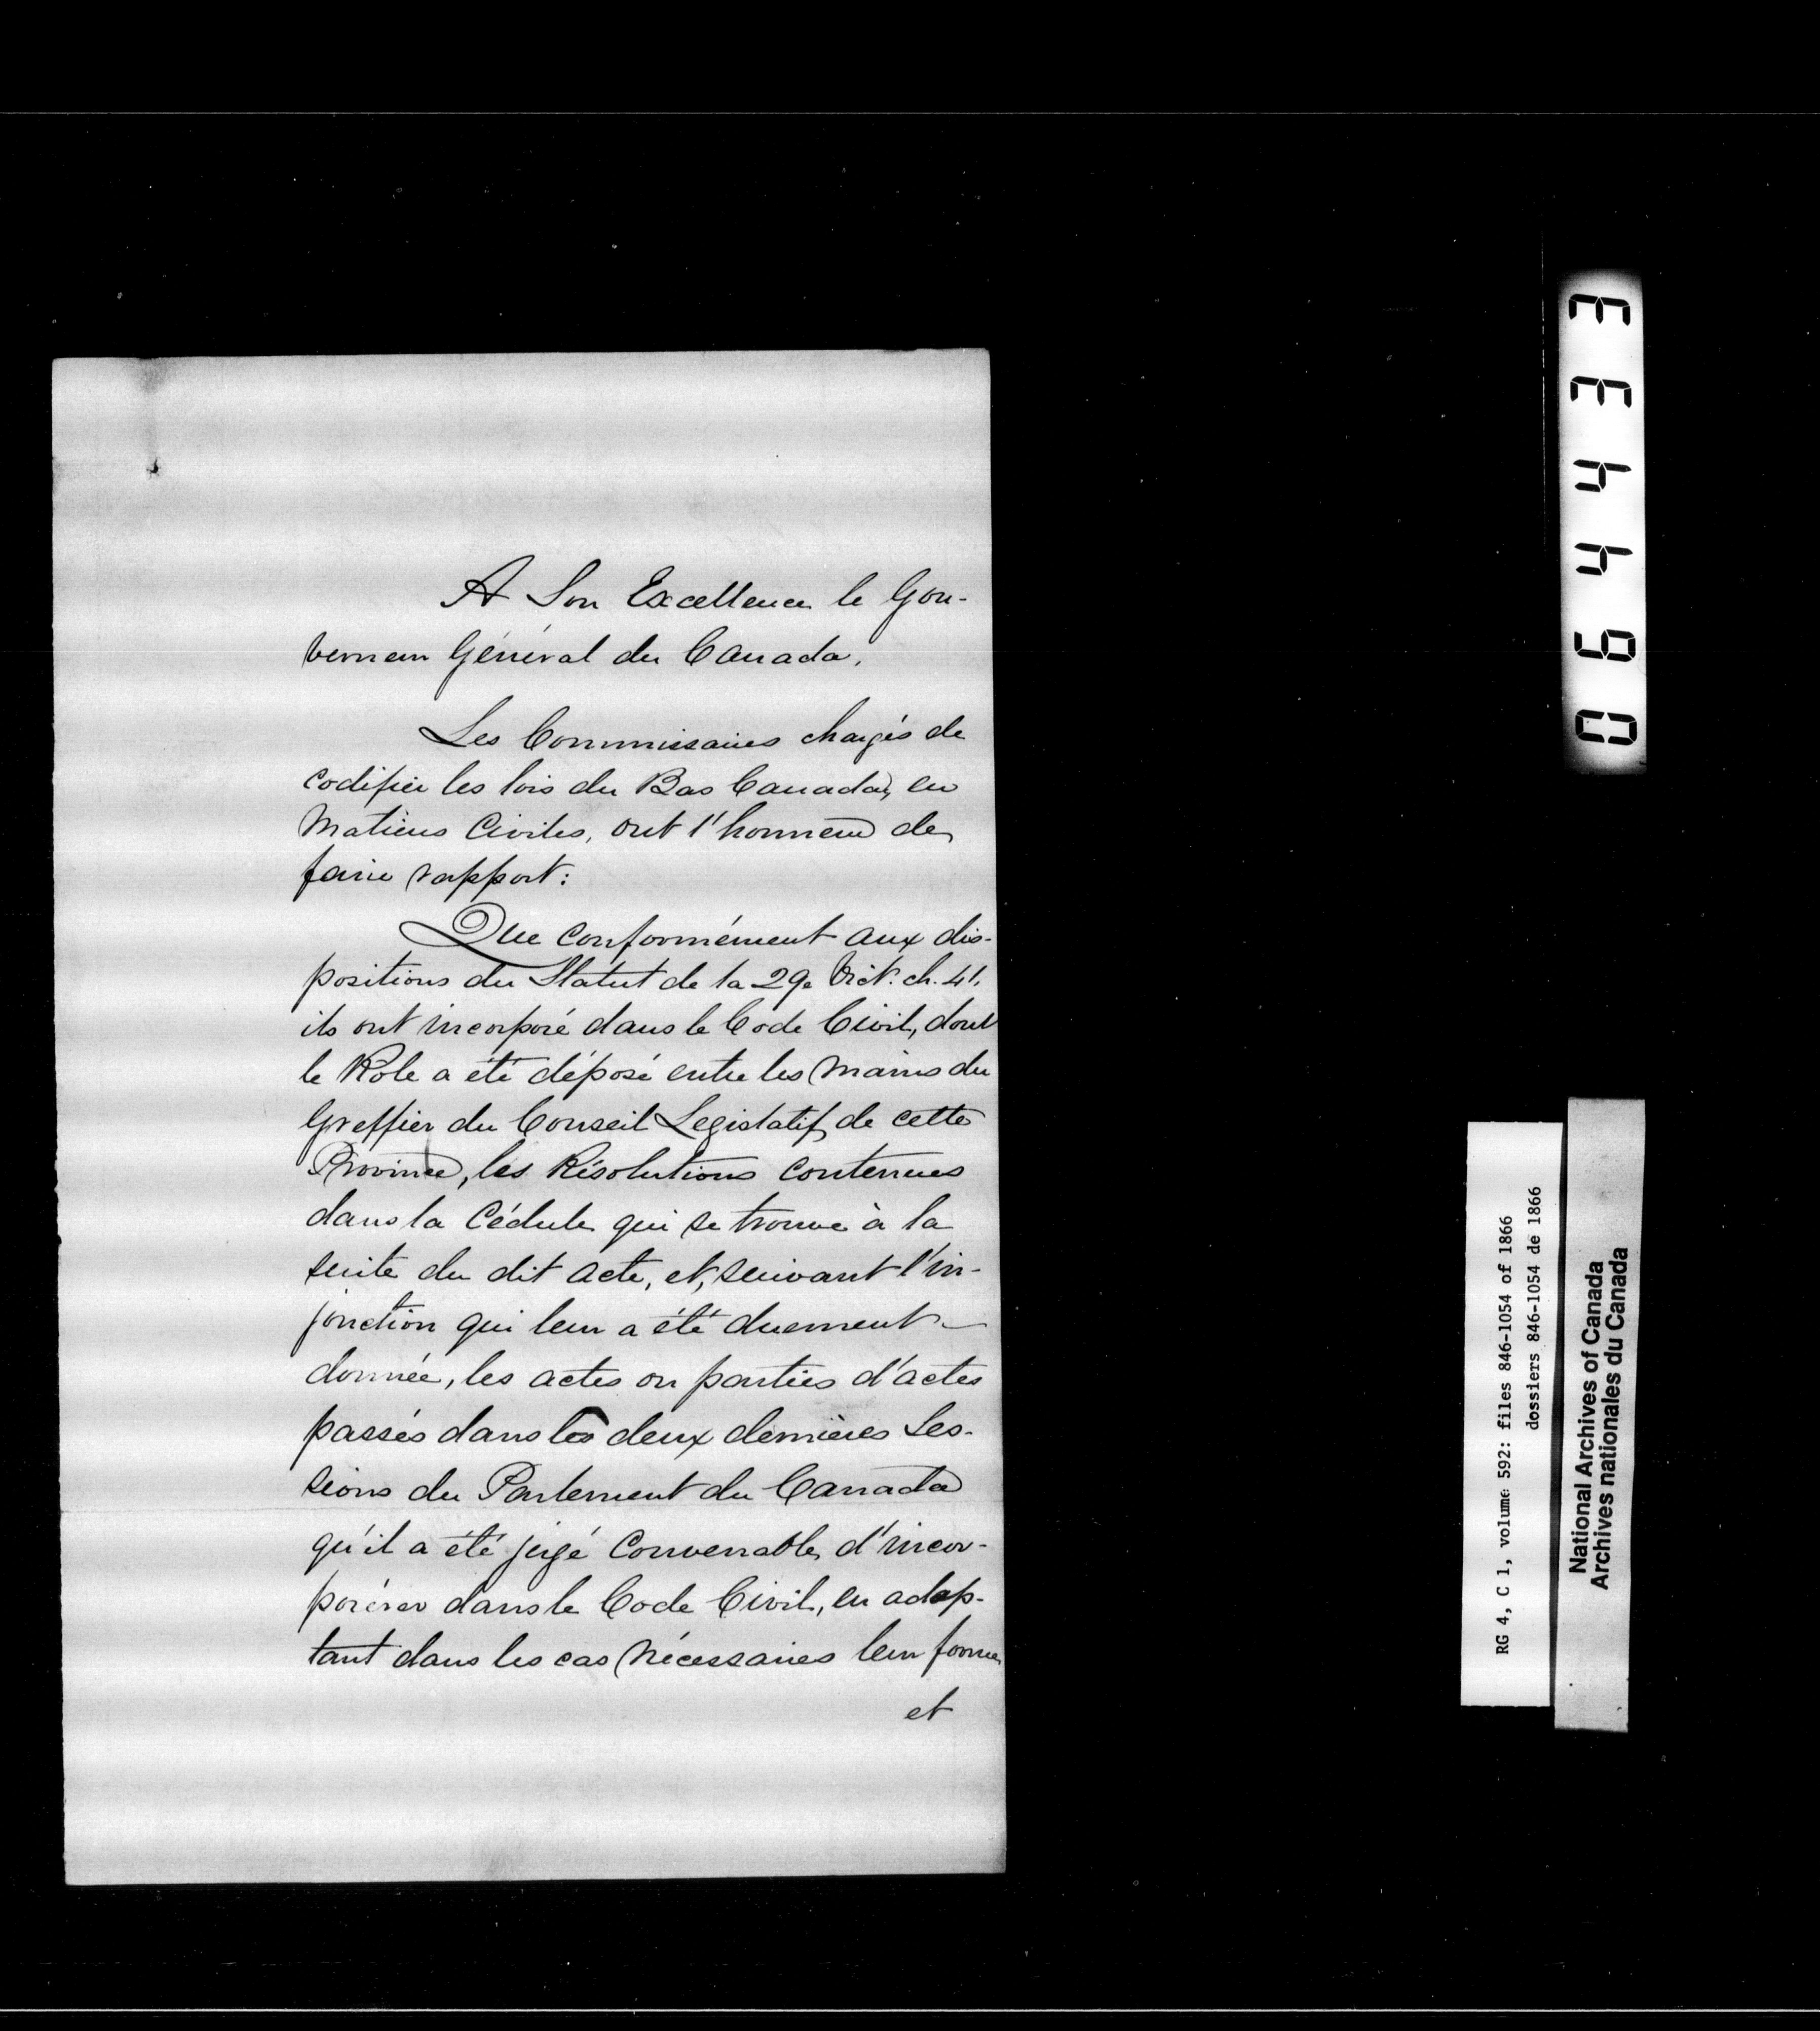 A Son Excellence le Gou-
verneur Général du Canada.
Les Commissaires chargés de
codifier les lois du Bas Canada, en
Matières Civiles, ont l'honneur de
faire rapport:
Que conformément aux dis-
positions du Statut de la 29e Vict. ch. 41.
ils ont incorporé dans le Code Civil, dont
le Rôle a été déposé entre les mains du
Greffier du Conseil Legislatif de cette
Province, les Résolutions contenues
dans la Cédule qui se trouve à la
suite du dit acte, et, suivant l'in-
jonction qui leur a été duement
donnée, les actes ou parties d'actes
passés dans les deux dernières Ses-
sions du Parlement du Canada
qu'il a été jugé Convenable d'incor-
porérer dans le Code Civil, en adap-
tant dans les cas nécessaires leur forme
et
334460
RG 4, C 1, volume 592: files 846-1054 of 1866
dossiers 846-1054 de 1866
National Archives of Canada
Archives nationales du Canada